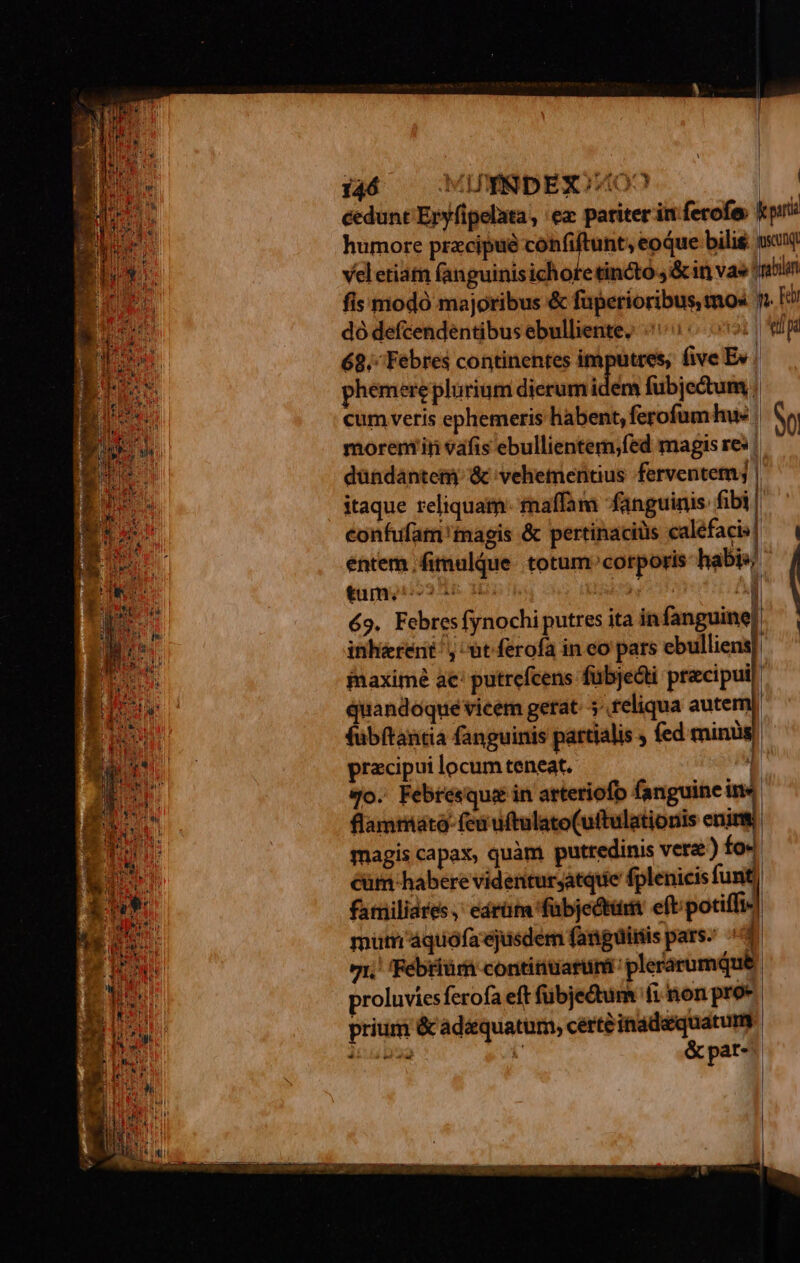 146 INDEX
cedunt Eryſipelata, ex pariter in ſeroſo
humore præcipuè conſiſtunt, eoque bilis
vel etiam ſanguinis ichore tincto, & in va-
ſis modò majoribus & ſuperioribus, mo-
dò deſcendentibus ebulliente.
68. Febres continentes imputres, ſive E-
phemeræ plurium dierum idem ſubjectum
cum veris ephemeris habent, ſeroſum hu-
morem in vaſis ebullientem, ſed magis re-
dundantem & vehementius ferventem;
itaque reliquam maſſam ſanguinis ſibi
confuſam magis & pertinaciùs calefaci-
entem ſimulque totum corporis habi-
tum.
69. Febres ſynochi putres ita in ſanguine
inhærent, ut ſeroſa in eo pars ebulliens
maximè ac putreſcens ſubjecti præcipui
quandoque vicem gerat; reliqua autem
ſubſtantia ſanguinis partialis, ſed minùs
præcipui locum teneat.
70. Febres quæ in arterioſo ſanguine in-
flammato ſeu uſtulato (uſtulationis enim
magis capax, quàm putredinis veræ) fo-
cum habere videntur, atque ſplenicis ſunt
familiares, earum ſubjectum eſt potiſſi-
mum aquoſa ejusdem ſanguinis pars.
71. Febrium continuarum plerarumque
proluvies ſeroſa eſt ſubjectum ſi non pro-
prium & adæquatum, certè inadæquatum
& par-